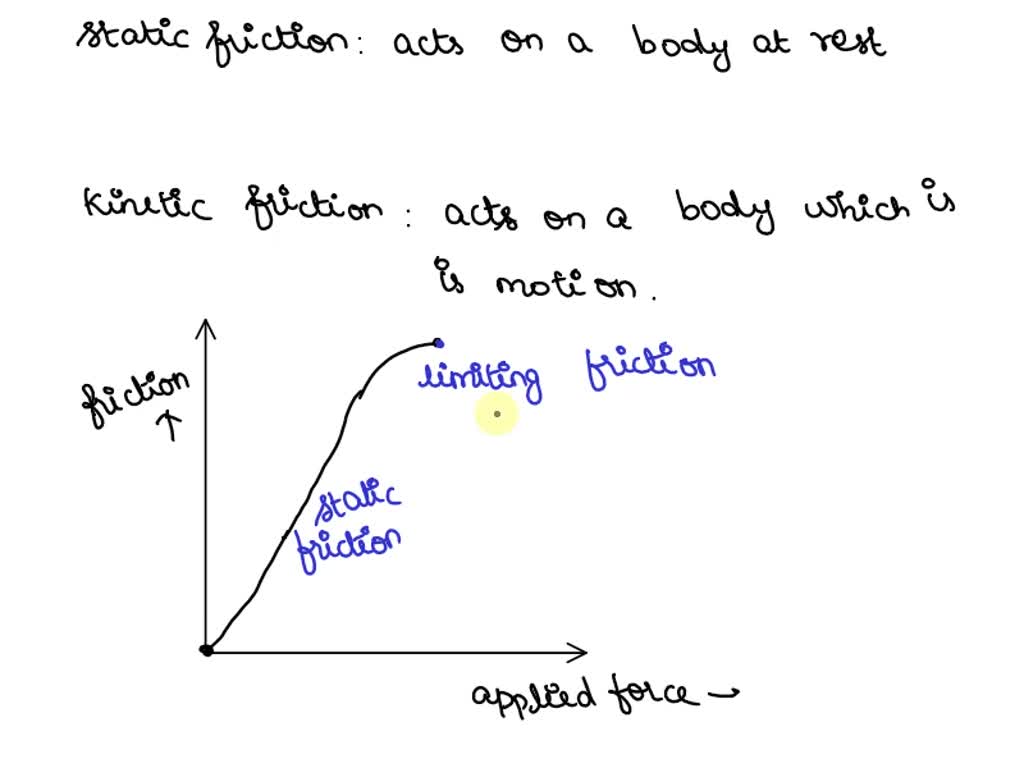 static friction: acts on a body at rest
kinetic friction: acts on a body which is
is motion.
friction
limiting friction
static
friction
applied force